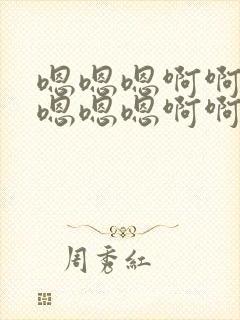 嗯嗯嗯啊啊
嗯嗯嗯啊啊
周秀红